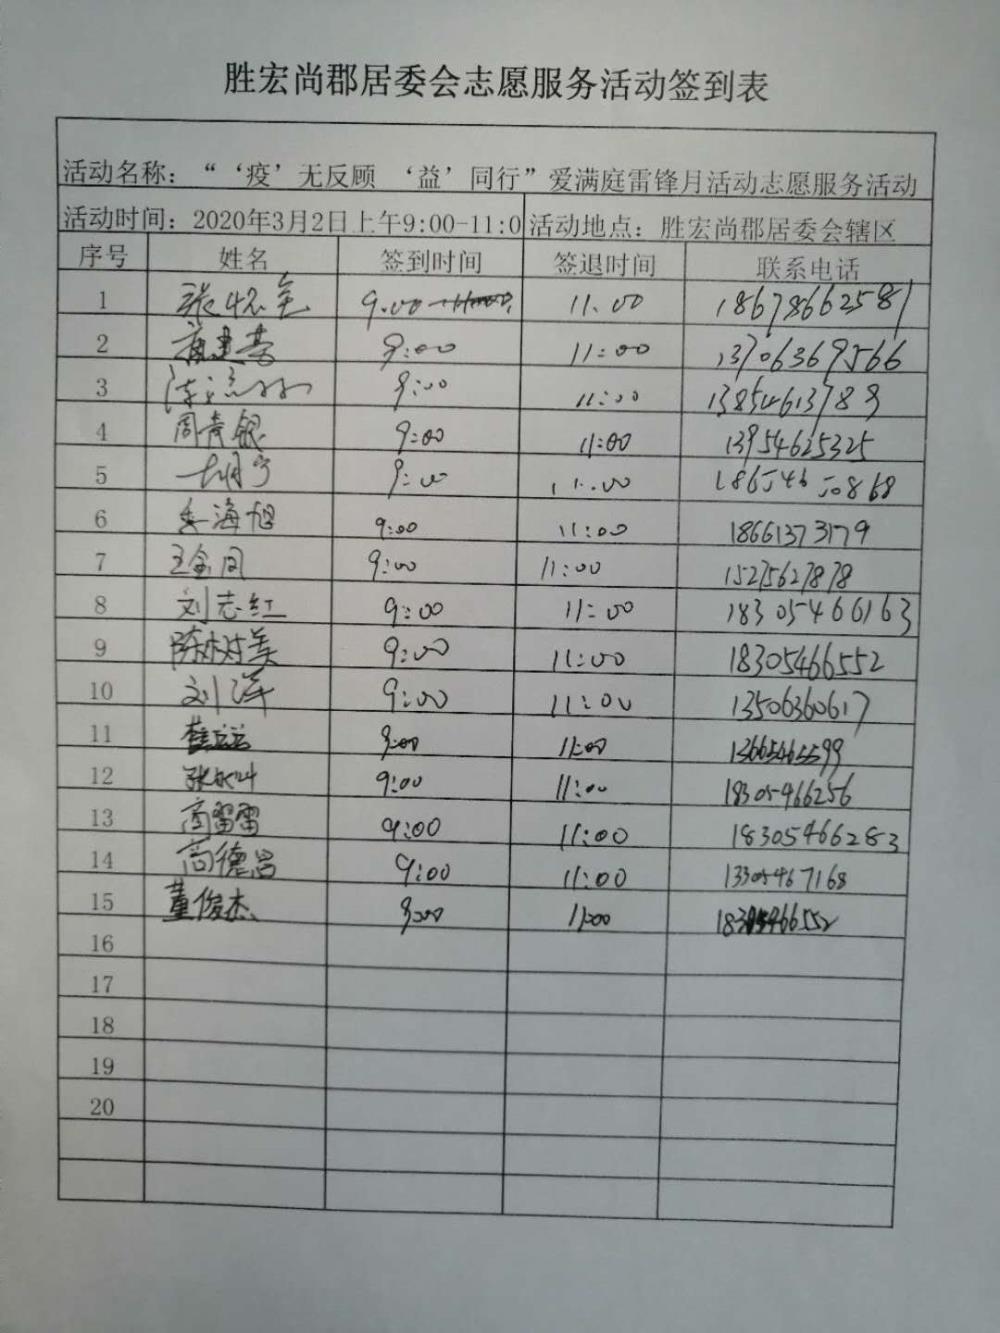 胜宏尚郡居委会志愿服务活动签到表
活动名称：“‘疫’无反顾 ‘益’同行”爱满庭雷锋月活动志愿服务活动
活动时间：2020年3月2日上午9:00-11:0 活动地点：胜宏尚郡居委会辖区
序号 姓名 签到时间 签退时间 联系电话
1 9.00 11.00 18678662581
2 9:00 11:00 13706369566
3 9:00 11:00 13854613789
4 周青银 9:00 11:00 13954625325
5 胡宁 9:00 11:00 18654650868
6 李海旭 9:00 11:00 18661373179
7 王金凤 9:00 11:00 15275627878
8 刘志红 9:00 11:00 18305466163
9 陈树美 9:00 11:00 18305466552
10 刘洋 9:00 11:00 13506360617
11 9:00 11:00 13665465599
12 9:00 11:00 18305466256
13 高雷雷 9:00 11:00 18305466283
14 尚德昌 9:00 11:00 13305467168
15 董俊杰 9:00 11:00 18305466552
16
17
18
19
20